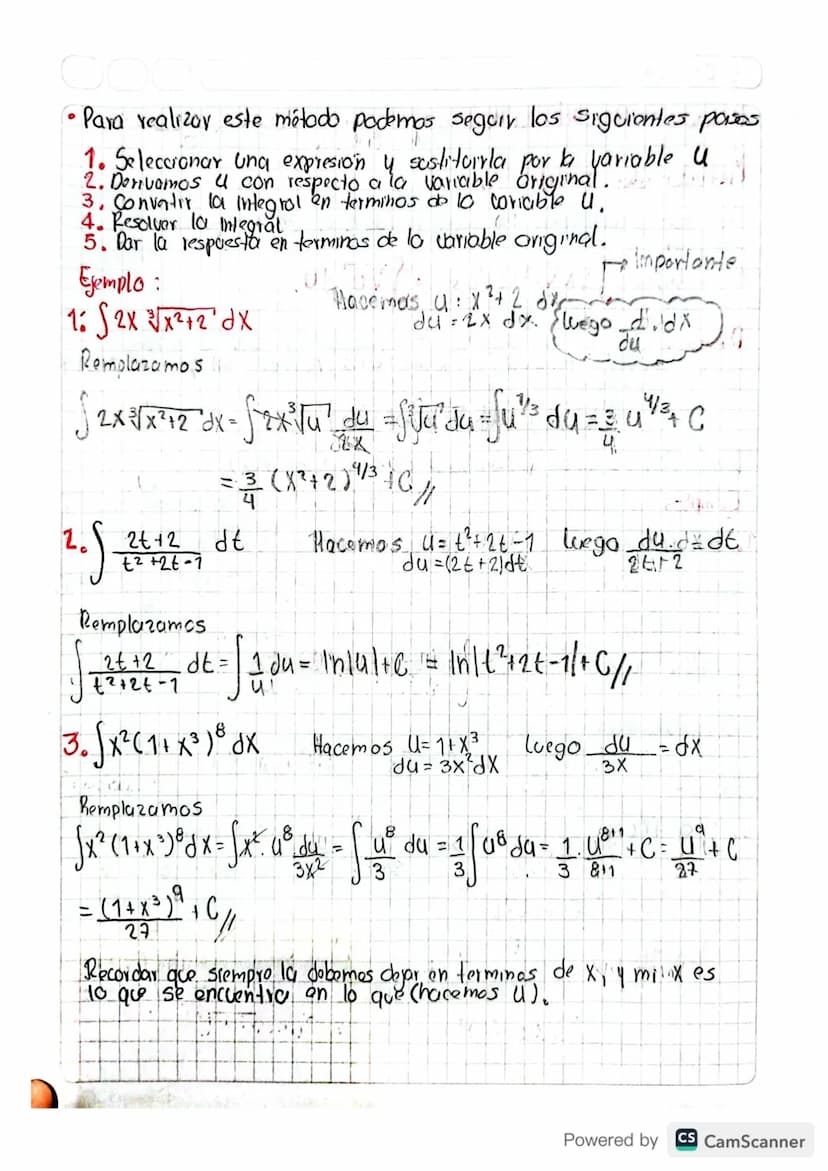 • Para realizar este método podemos seguir los siguientes pasos
1. Seleccionar una expresión y sustituirla por la variable u
2. Derivamos u con respecto a la variable original.
3. Convertir la integral en terminos de la variable u.
4. Resolver la Integral
5. Dar la respuesta en terminos de la variable original.
Importante
Ejemplo:
1: ∫2x ∛(x²+2) dx Hacemos u: x²+2 dx
du = 2x dx. luego
Remplazamos
∫ 2x ∛(x²+2) dx = ∫ 2x ∛u du/2x = ∫ ∛u du = ∫ u^1/3 du = 3/4 u^4/3 + C
= 3/4 (x²+2)^4/3 + C //
2. ∫ (2t+2)/(t²+2t-1) dt Hacemos u = t²+2t-1 luego du/(2t+2) = dt
du = (2t+2)dt
Remplazamos
∫ (2t+2)/(t²+2t-1) dt = ∫ 1/u du = ln|u|+C = ln|t²+2t-1|+C //
3. ∫x²(1+x³)⁸ dx Hacemos u = 1+x³ luego du/3x = dx
du = 3x²dx
Remplazamos
∫x²(1+x³)⁸dx = ∫x². u⁸ du/3x² = ∫ u⁸/3 du = 1/3 ∫ u⁸ du = 1/3 . u^8+1/8+1 + C = u⁹/27 + C
= (1+x³)⁹/27 + C //
Recordar que siempre la debemos dejar en terminos de x, y mi x es
lo que se encuentra en lo que (hacemos u).
Powered by CS CamScanner